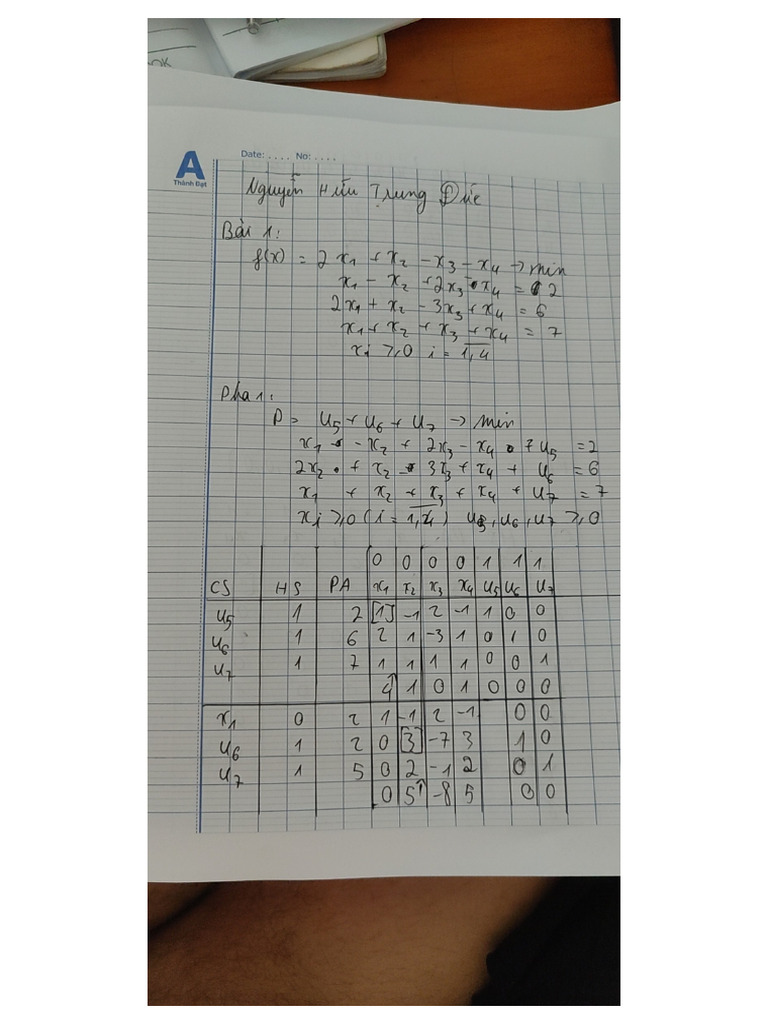 OK
A
Thành Đạt
Date: .... No: ....
Nguyễn Hữu Trung Đức
Bài 1:
f(x) = 2x₁ + x₂ - x₃ - x₄ → min
x₁ - x₂ + 2x₃ - x₄ = 2
2x₁ + x₂ - 3x₃ + x₄ = 6
x₁ + x₂ + x₃ + x₄ = 7
xi ≥ 0 i = 1,4
Pha 1:
P = u₅ + u₆ + u₇ → min
x₁ - x₂ + 2x₃ - x₄ + u₅ = 2
2x₂ + x₂ - 3x₃ + x₄ + u₆ = 6
x₁ + x₂ + x₃ + x₄ + u₇ = 7
xi ≥ 0 (i = 1,4) u₅, u₆, u₇ ≥ 0
0 0 0 0 1 1 1
CS HS PA x₁ x₂ x₃ x₄ u₅ u₆ u₇
u₅ 1 2 [1] -1 2 -1 1 0 0
u₆ 1 6 2 1 -3 1 0 1 0
u₇ 1 7 1 1 1 1 0 0 1
4↑ 1 0 1 0 0 0
x₁ 0 2 1 -1 2 -1 0 0
u₆ 1 2 0 [3] -7 3 1 0
u₇ 1 5 0 2 -1 2 0 1
0 5↑ -8 5 0 0